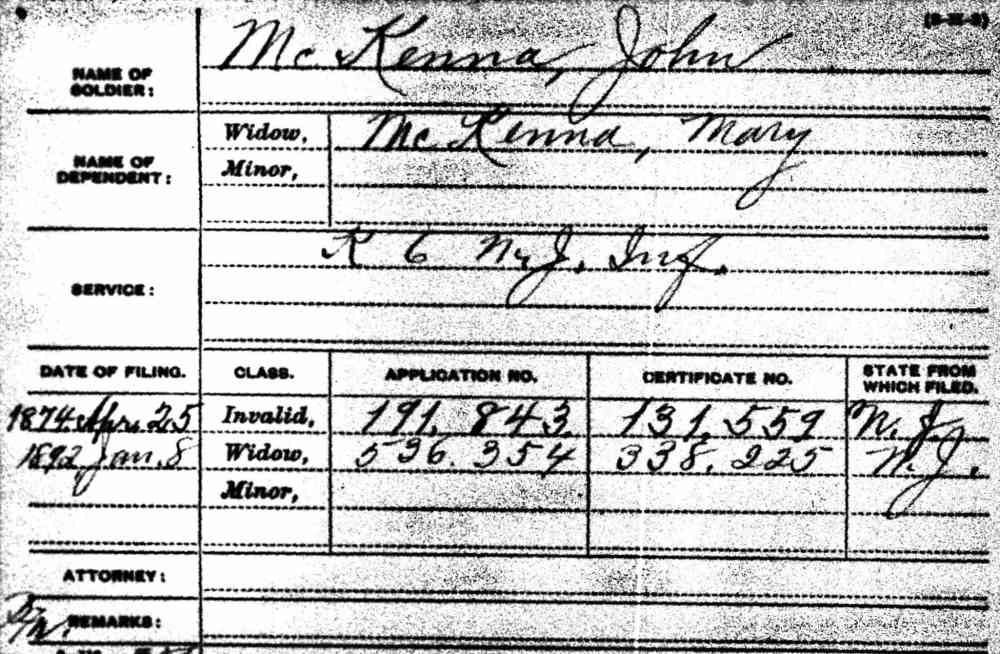 McKenna, John
NAME OF
SOLDIER:
Widow, McKenna, Mary
NAME OF
DEPENDENT:
Minor,
K 6 N.J. Inf.
SERVICE:
DATE OF FILING. CLASS. APPLICATION NO. CERTIFICATE NO. STATE FROM WHICH FILED.
1874 Apr. 25 Invalid, 191.843 131.559 N.J.
1892 Jan. 8 Widow, 536.354 338.225 N.J.
Minor,
ATTORNEY:
REMARKS: